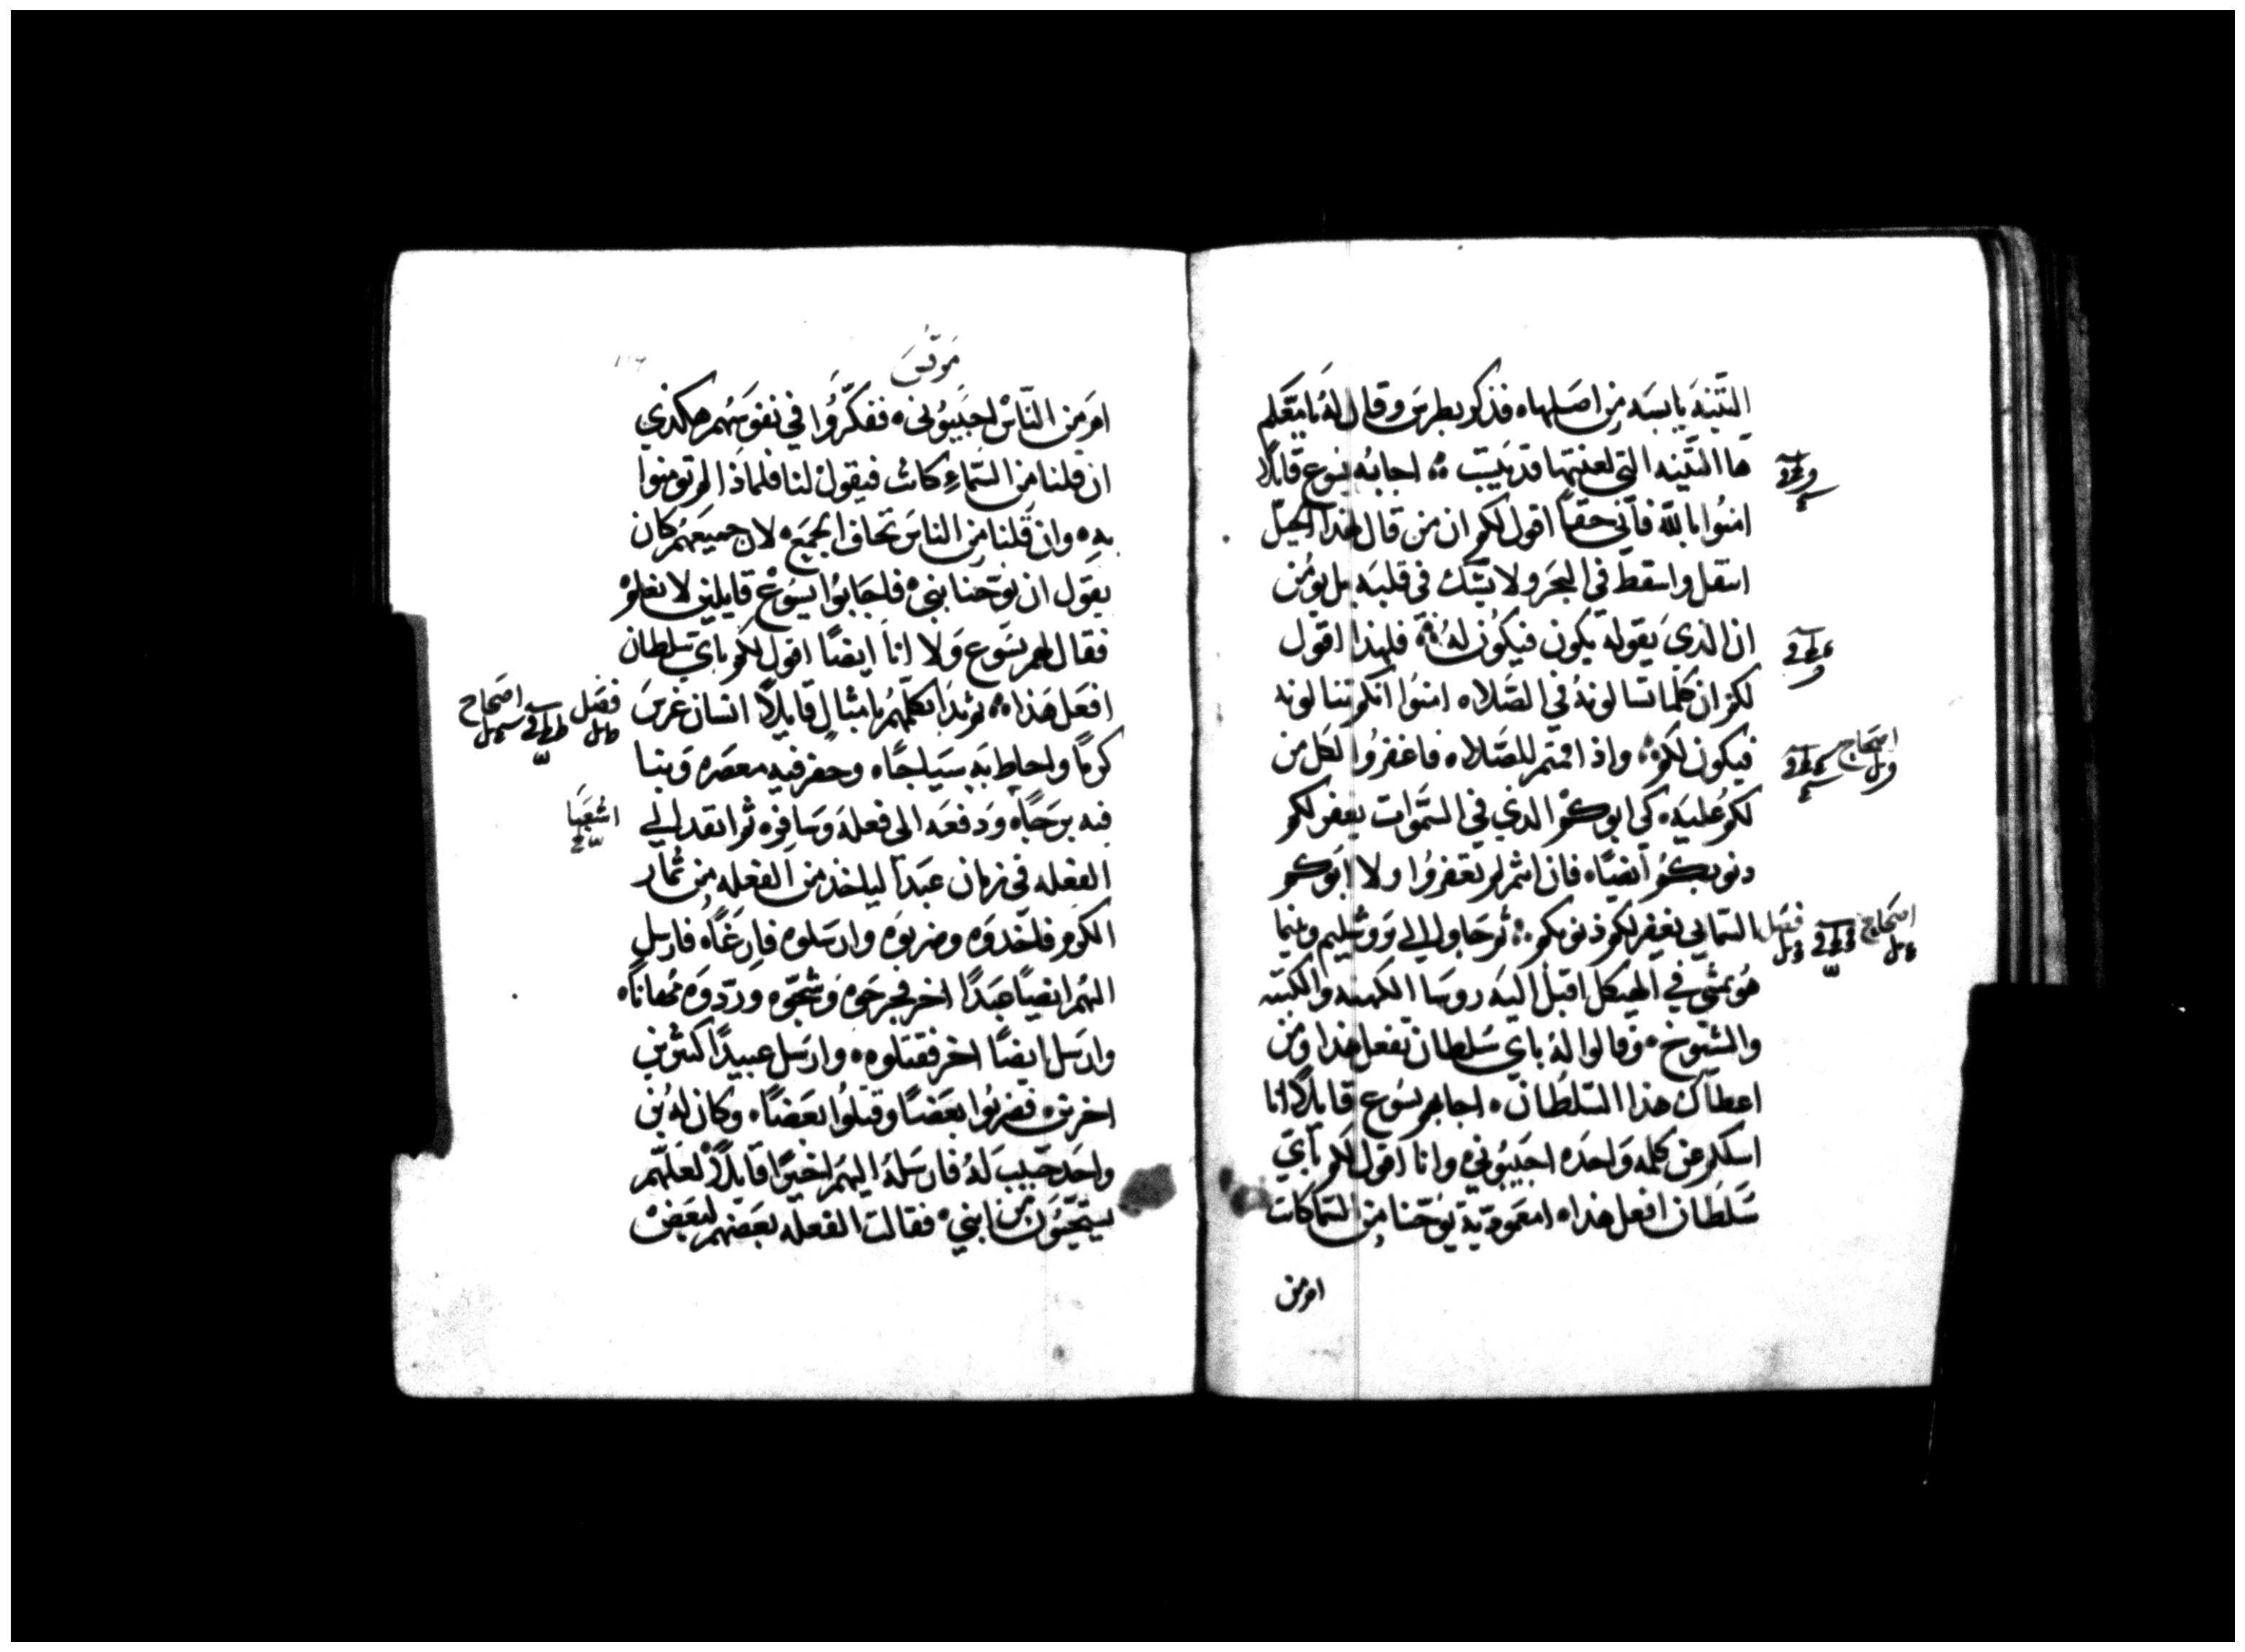 التينه يابسه من اصلها ه فذكر بطرس وقال له يا معلم
ها التينه التي لعنتها قد يبست ۞ اجابه يسوع قايلًا
امنوا بالله فاني حقًا اقول لكم ان من قال لهذا الجبل
انتقل واسقط في البحر ولا يشك في قلبه بل يومن
ان الذي يقوله يكون فيكون له ۞ فلهذا اقول
لكم ان كلما تسالونه في الصلاه امنوا انكم تنالونه
فيكون لكم ۞ واذا قمتم للصلاه فاغفروا لكل من
لكم عليه ه كي ابوكم الذي في السموات يغفر لكم
دنوبكم ايضًا ه فان انتم لم تغفروا ولا ابوكم
السمايي يغفر لكم ذنوبكم ۞ ثم جاوا الي يروشليم وبينما
فصل
اصحاح
هو يمشي في الهيكل اقبل اليه روسا الكهنه والكتبه
والشيوخ ه وقالوا له باي سلطان تفعل هذا ومن
اعطاك هذا السلطان ه اجابهم يسوع قايلًا انا
اسلكم عن كلمه واحده اجيبوني ه وانا اقول لكم باي
سلطان افعل هذا ه امعمودية يوحنا من السما كانت
ام من
اصحاح
مرقس
ام من الناس اجيبوني ه ففكروا في نفوسهم هكذي
ان قلنا من السماء كانت فيقول لنا فلماذا لم تومنوا
به ه وان قلنا من الناس نخاف الجمع ه لان جميعهم كان
يقول ان يوحنا نبي ه فاجابوا يسوع قايلين لا نعلم
فقال لهم يسوع ولا انا ايضًا اقول لكم باي سلطان
افعل هذا ه ۞ ثم بدا يكلمهم بامثال قايلًا انسان غرس
فصل
اصحاح
كرمًا واحاط به سياجًا ه وحفر فيه معصره وبنا
فيه برجًا ه ودفعه الى فعله وسافر ه ثم انقد الي
اشعيا
الفعله في زمان عبدًا لياخذ من الفعله من ثمار
الكرم فاخدوه وضربوه وارسلوه فارغًا ه فارسل
اليهم ايضًا عبدًا اخر فجرحوه وشجوه وردوه مهانًا ه
وارسل ايضًا اخر فقتلوه ه وارسل عبيدًا كثيرين
اخرين ه فضربوا بعضًا وقتلوا بعضًا ه وكان له بن
واحد حبيب له فارسله اليهم اخيرًا قايلًا لعلهم
يستحيون من ابني ه فقالت الفعله بعضهم لبعض